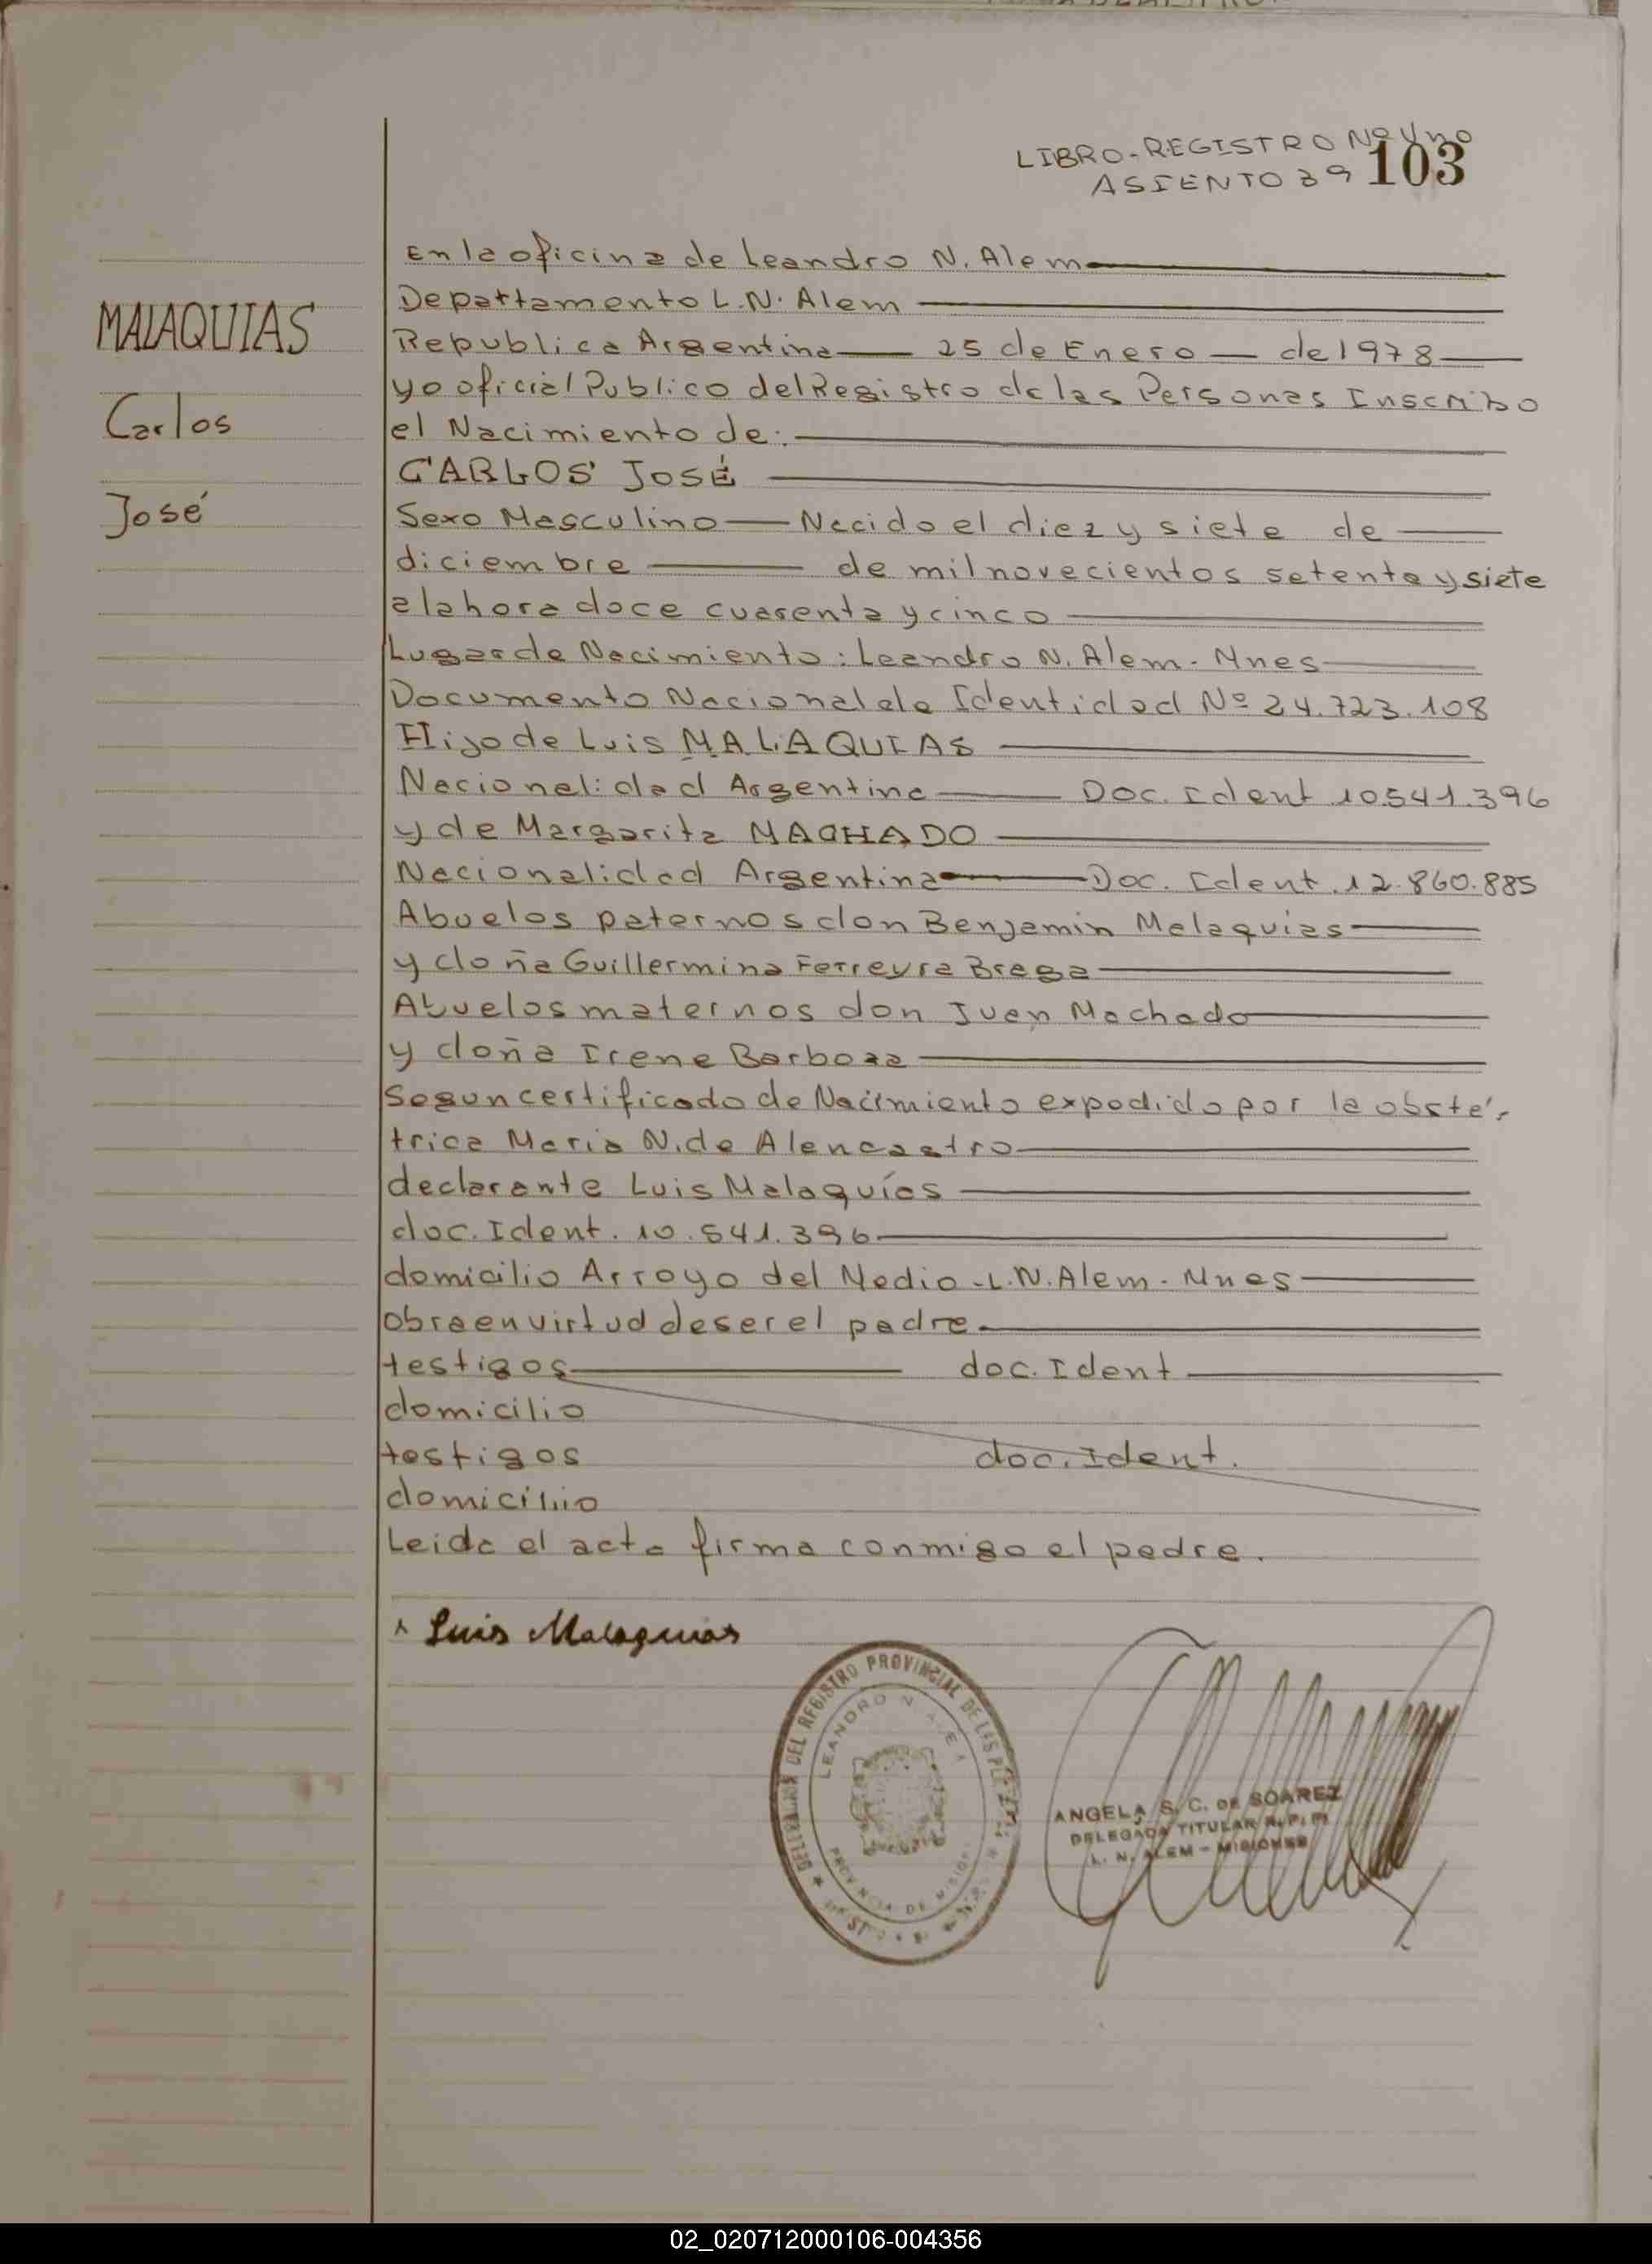 LIBRO-REGISTRO Nº Uno
ASIENTO 39 103
En la oficina de Leandro N. Alem
Departamento L.N. Alem
MALAQUIAS
Republica Argentina 25 de Enero de 1978
yo oficial Publico del Registro de las Personas Inscribo
Carlos
el Nacimiento de:
CARLOS JOSÉ
José
Sexo Masculino Nacido el diez y siete de
diciembre de mil novecientos setenta y siete
a la hora doce cuarenta y cinco
Lugar de Nacimiento: Leandro N. Alem - Mnes
Documento Nacional de Identidad Nº 24.723.108
Hijo de Luis MALAQUIAS
Nacionalidad Argentina Doc. Ident 10.541.396
y de Margarita MACHADO
Nacionalidad Argentina Doc. Ident. 12.860.885
Abuelos paternos don Benjamin Malaquias
y doña Guillermina Ferreyra Braga
Abuelos maternos don Juan Machado
y doña Irene Barboza
Segun certificado de Nacimiento expedido por la obsté-
trica Maria N. de Alencastro
declarante Luis Malaquías
doc. Ident. 10.541.396
domicilio Arroyo del Medio - L.N. Alem - Mnes
obra en virtud de ser el padre.
testigos doc. Ident
domicilio
testigos doc. Ident.
domicilio
Leida el acta firma conmigo el padre.
Luis Malaquias
DEL REGISTRO PROVINCIAL DE LAS
LEANDRO N. ALEM
PROVINCIA DE MISIONES
ANGELA S. C. DE SOAREZ
DELEGADA TITULAR R. P. P.
L. N. ALEM - MISIONES
02_020712000106-004356